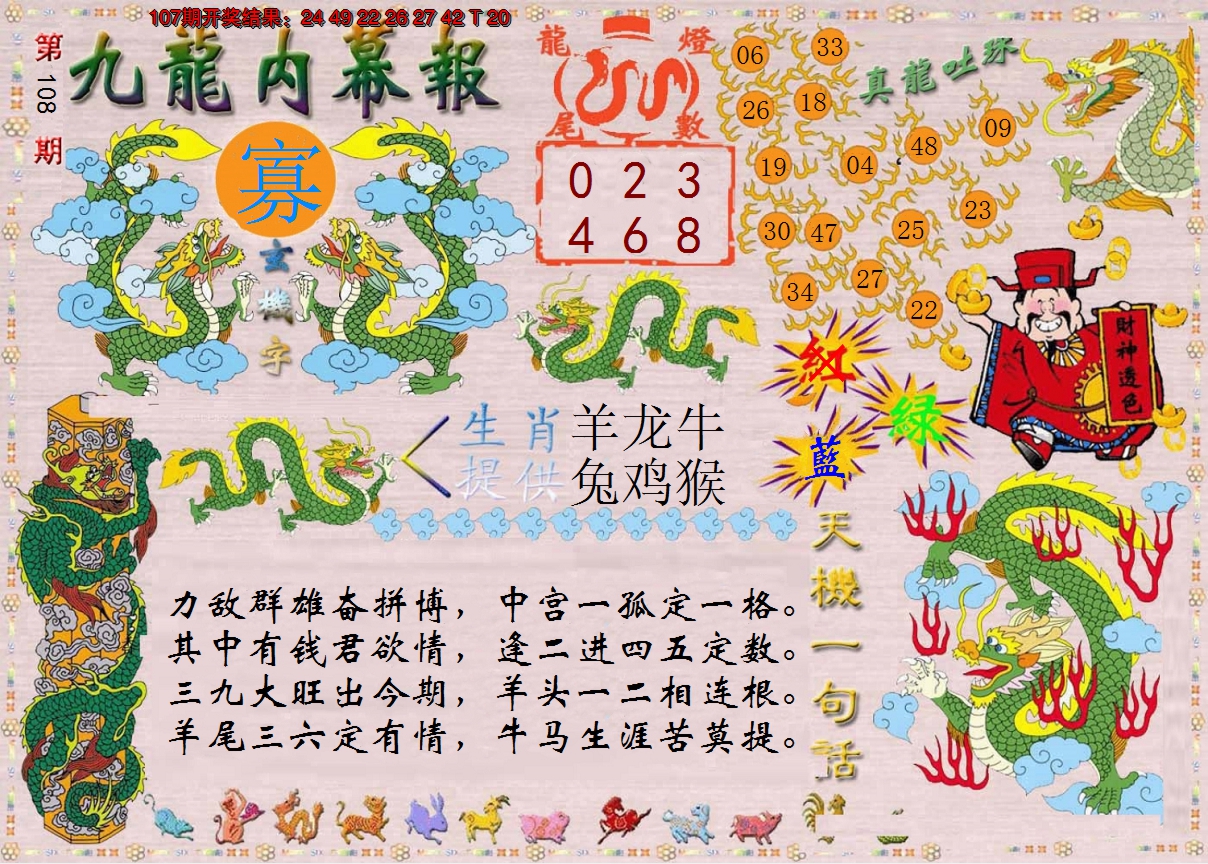 107期开奖结果：24 49 22 26 27 42 T 20
第108期
九龍内幕報
寡
玄機字
龍燈
尾數
0 2 3
4 6 8
真龍吐珠
06 33
26 18
48 09
19 04
30 47 25 23
34 27 22
財神透色
紅
綠
藍
生肖 羊龙牛
提供 兔鸡猴
天機一句話
力敌群雄奋拼博，中宫一孤定一格。
其中有钱君欲情，逢二进四五定数。
三九大旺出今期，羊头一二相连根。
羊尾三六定有情，牛马生涯苦莫提。